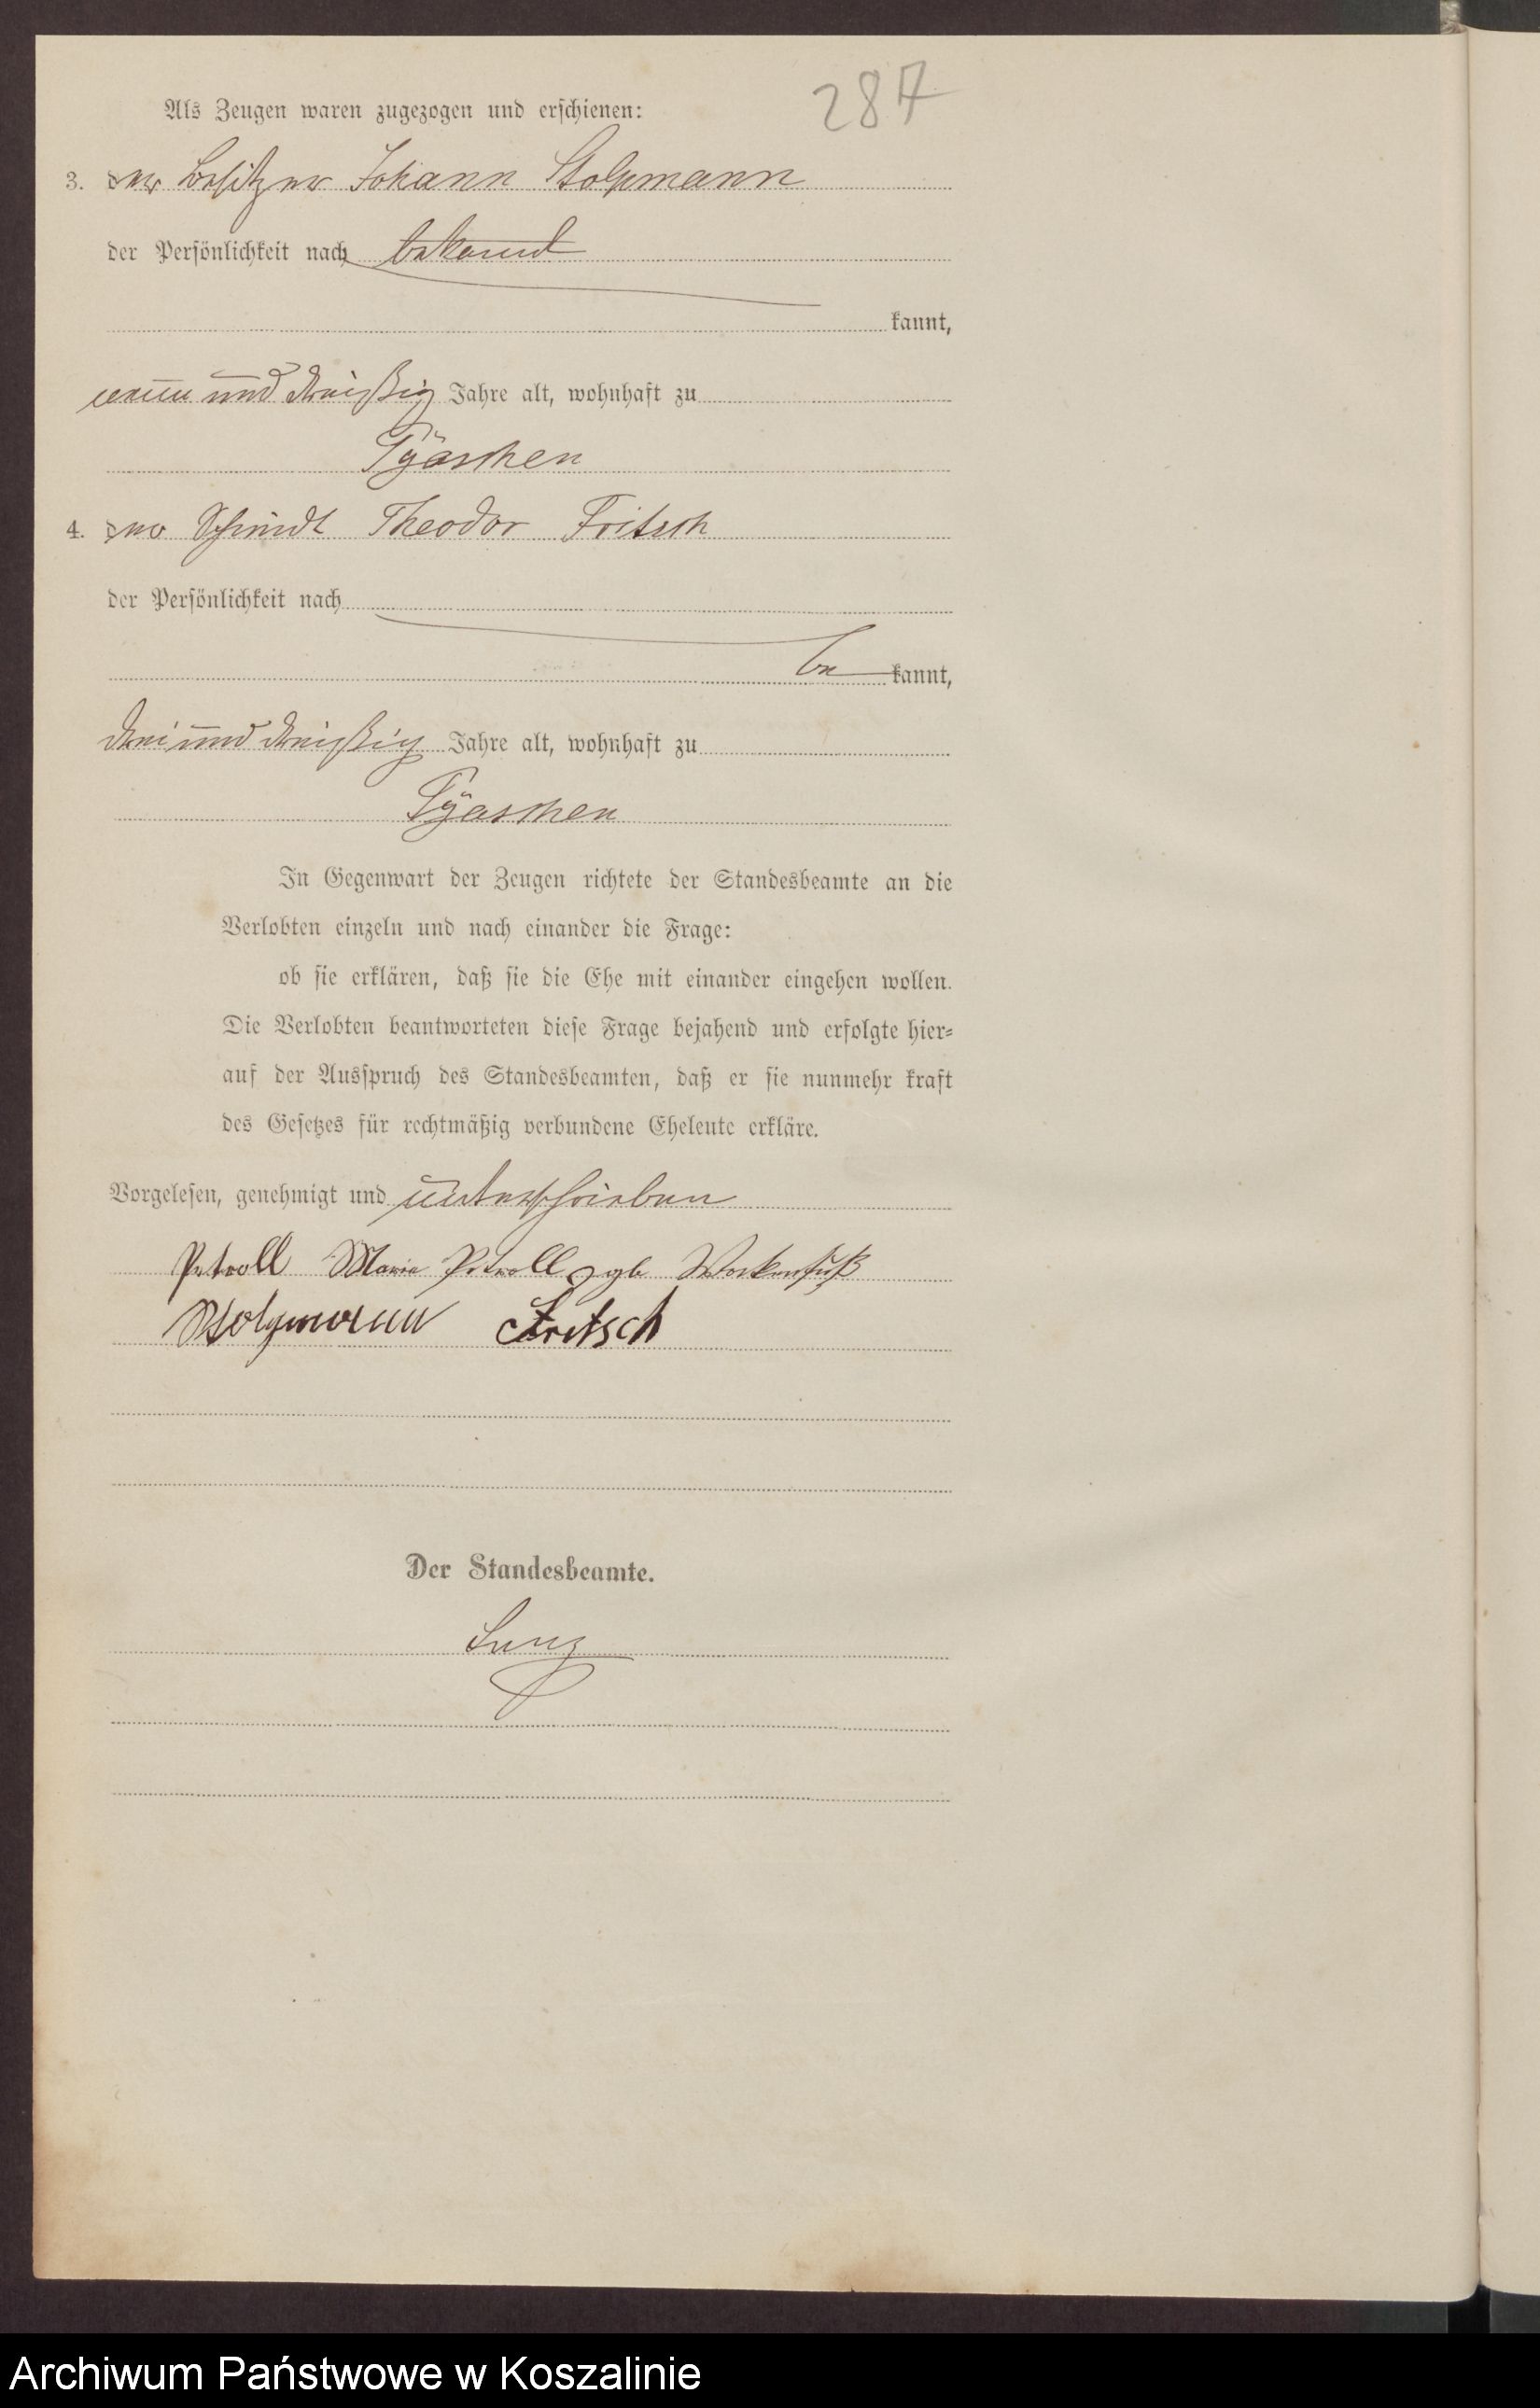 287
Als Zeugen waren zugezogen und erschienen:
3. der Besitzer Johann Stolpmann
der Persönlichkeit nach bekannt
kannt,
neun und dreißig Jahre alt, wohnhaft zu
Pyaschen
4. der Schmidt Theodor Fritsch
der Persönlichkeit nach
be kannt,
drei und dreißig Jahre alt, wohnhaft zu
Pyaschen
In Gegenwart der Zeugen richtete der Standesbeamte an die
Verlobten einzeln und nach einander die Frage:
ob sie erklären, daß sie die Ehe mit einander eingehen wollen.
Die Verlobten beantworteten diese Frage bejahend und erfolgte hier-
auf der Ausspruch des Standesbeamten, daß er sie nunmehr kraft
des Gesetzes für rechtmäßig verbundene Eheleute erkläre.
Vorgelesen, genehmigt und unterschrieben
Petroll Marie Petroll geb Workenfuß
Stolpmann Fritsch
Der Standesbeamte.
Archiwum Państwowe w Koszalinie